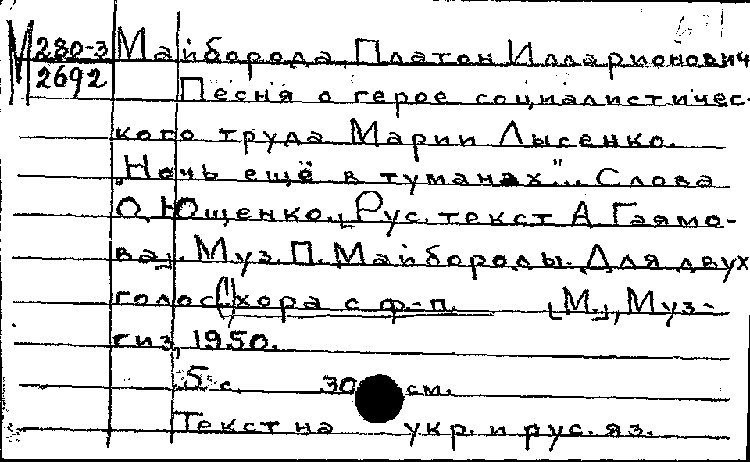 М 280-3 Майборода, Платон Илларионович
2692 Песня о герое социалистичес-
кого труда Марии Лысенко.
„Ночь ещё в туманах"... Слова
О. Ющенко. [Рус. текст А. Гаямо-
ва]. Муз. П. Майбороды. Для двух
голос. () хора с ф.-п. [М.], Муз-
гиз, 1950.
5 с. 30 см.
Текст на укр. и рус. яз.